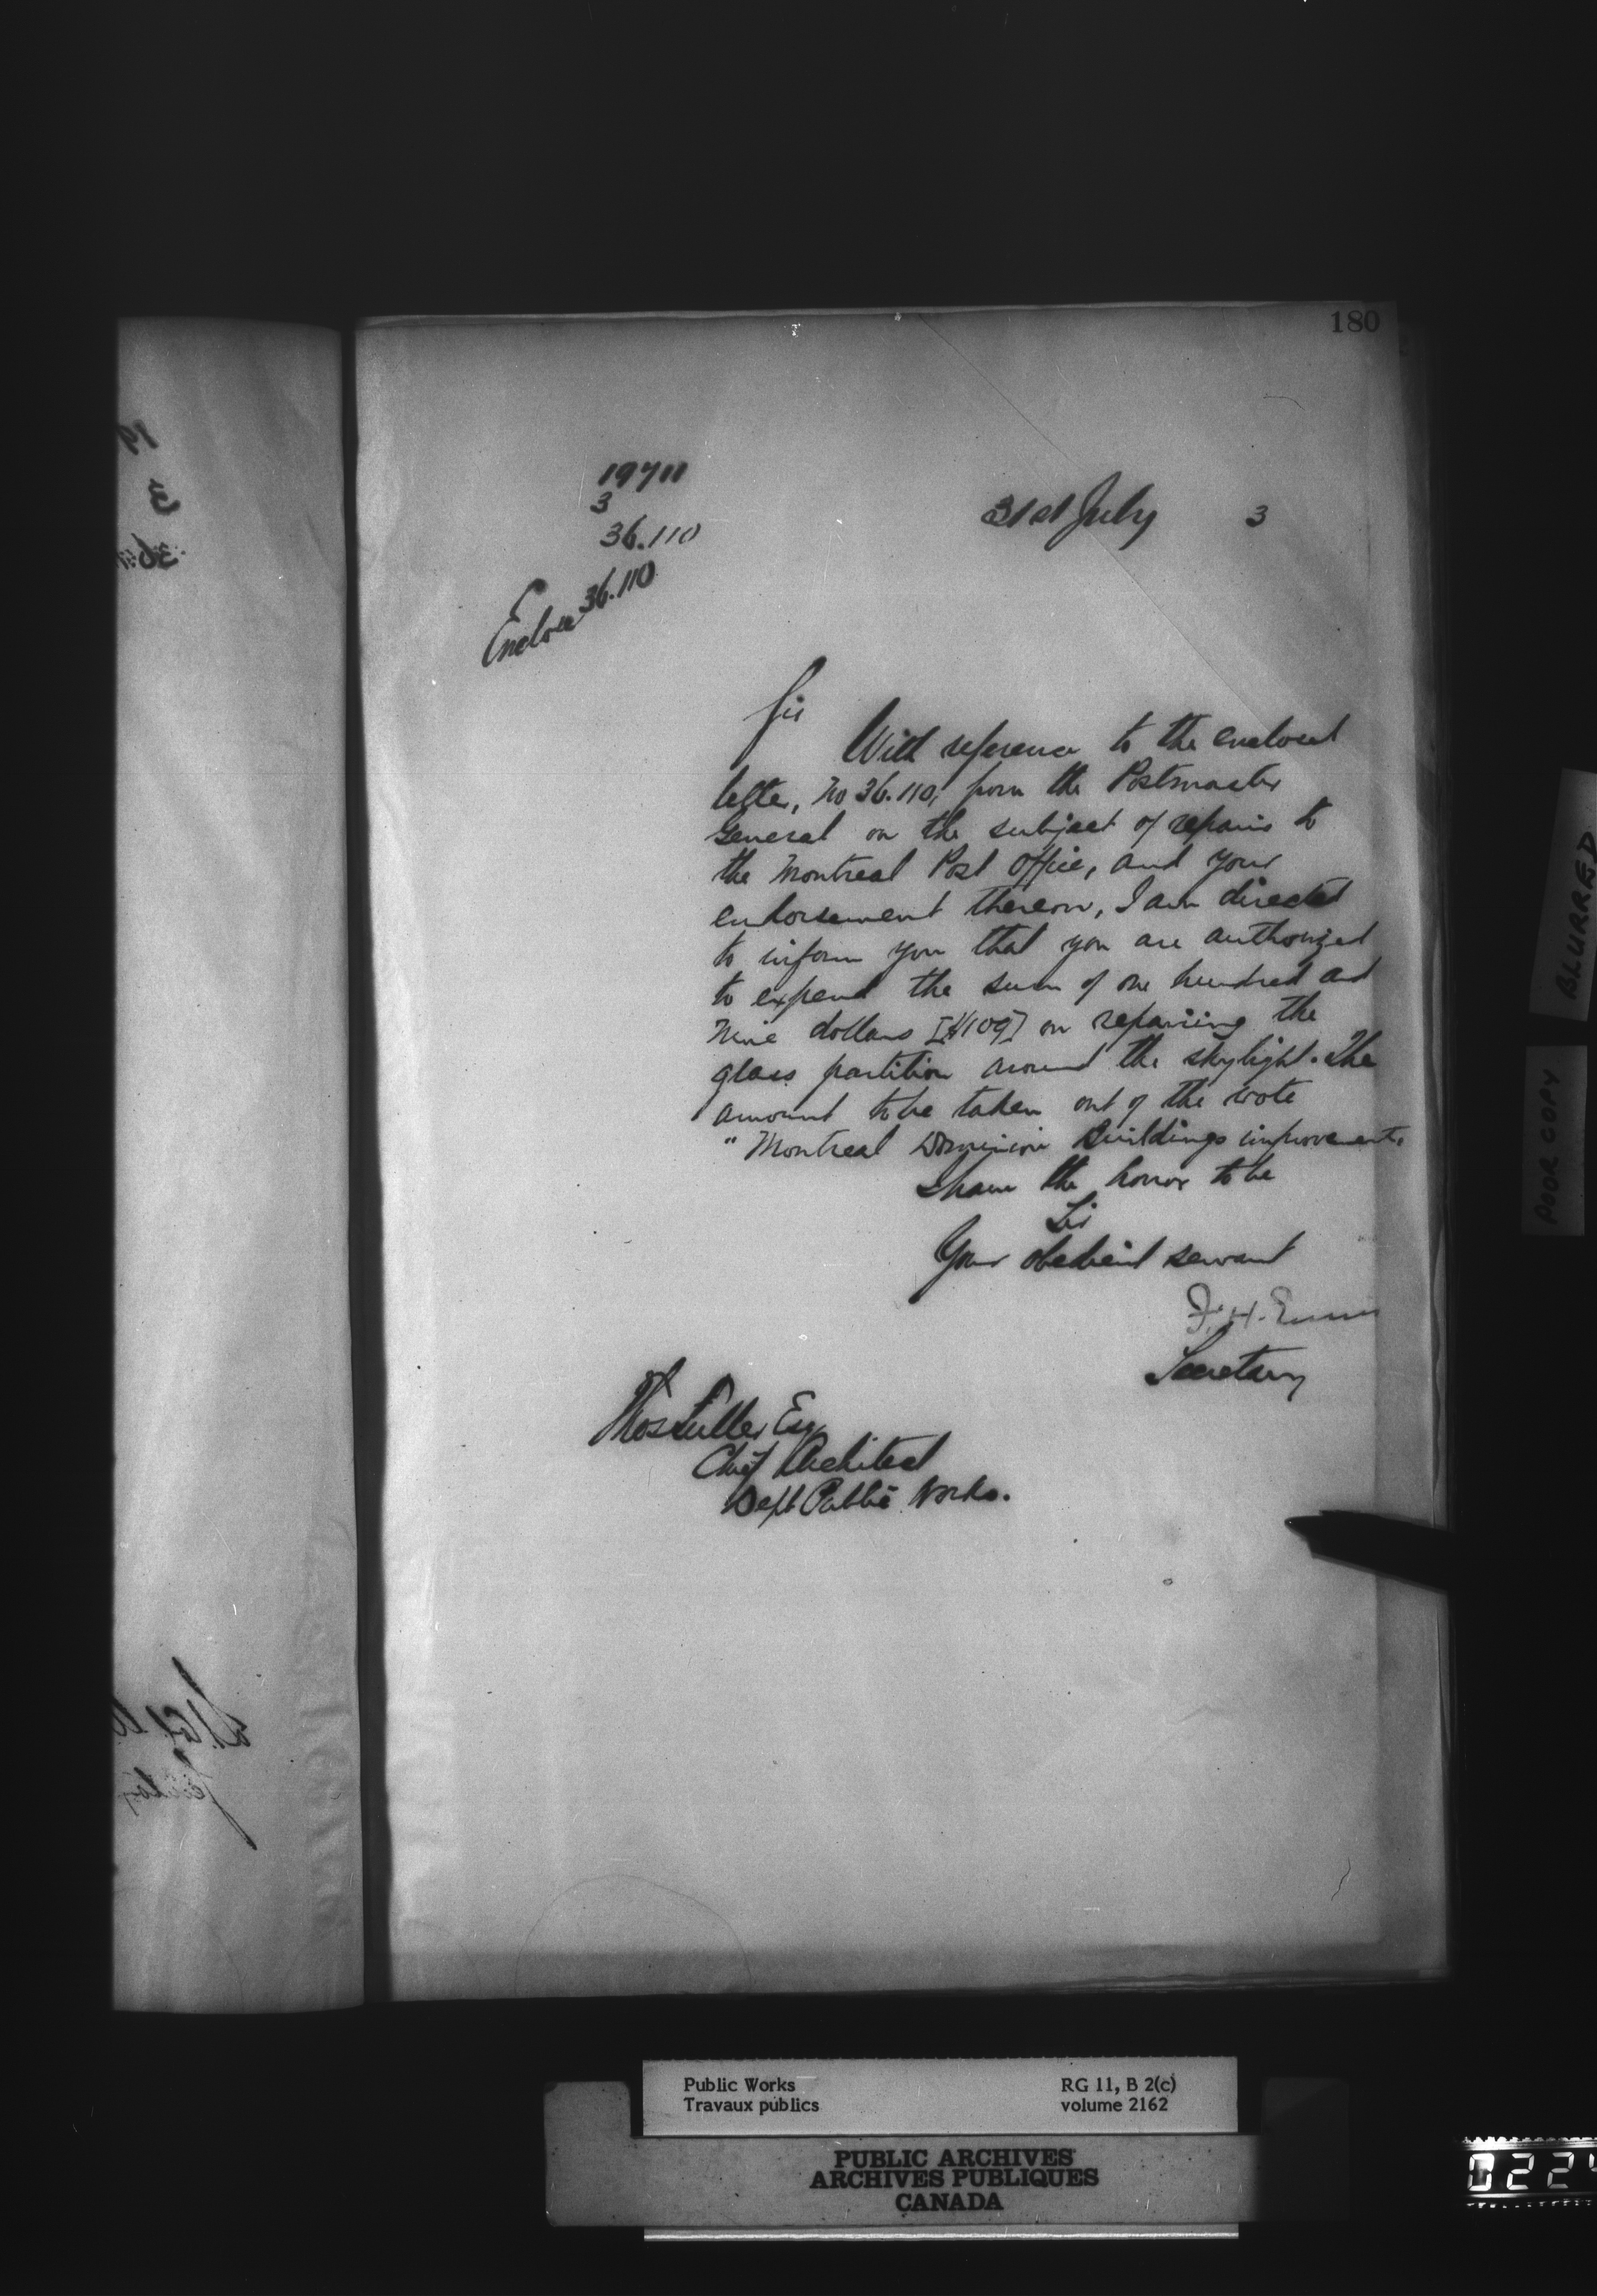 180
19711
3
36.110
Enclose 36.110
31st July 3
Sir
With reference to the enclosed
letter, No 36.110, from the Postmaster
General on the subject of repairs to
the Montreal Post Office, and your
endorsement thereon, I am directed
to inform you that you are authorized
to expend the sum of one hundred and
Nine dollars [$109] on repairing the
glass partition around the skylight. The
amount to be taken out of the vote
"Montreal Dominion Buildings improvements
I have the honor to be
Sir
Your obedient servant
F. H. Ennis
Secretary
Thos Fuller Esq
Chief Architect
Dept Public Works.
BLURRED
POOR COPY
Public Works RG 11, B 2(c)
Travaux publics volume 2162
PUBLIC ARCHIVES
ARCHIVES PUBLIQUES
CANADA